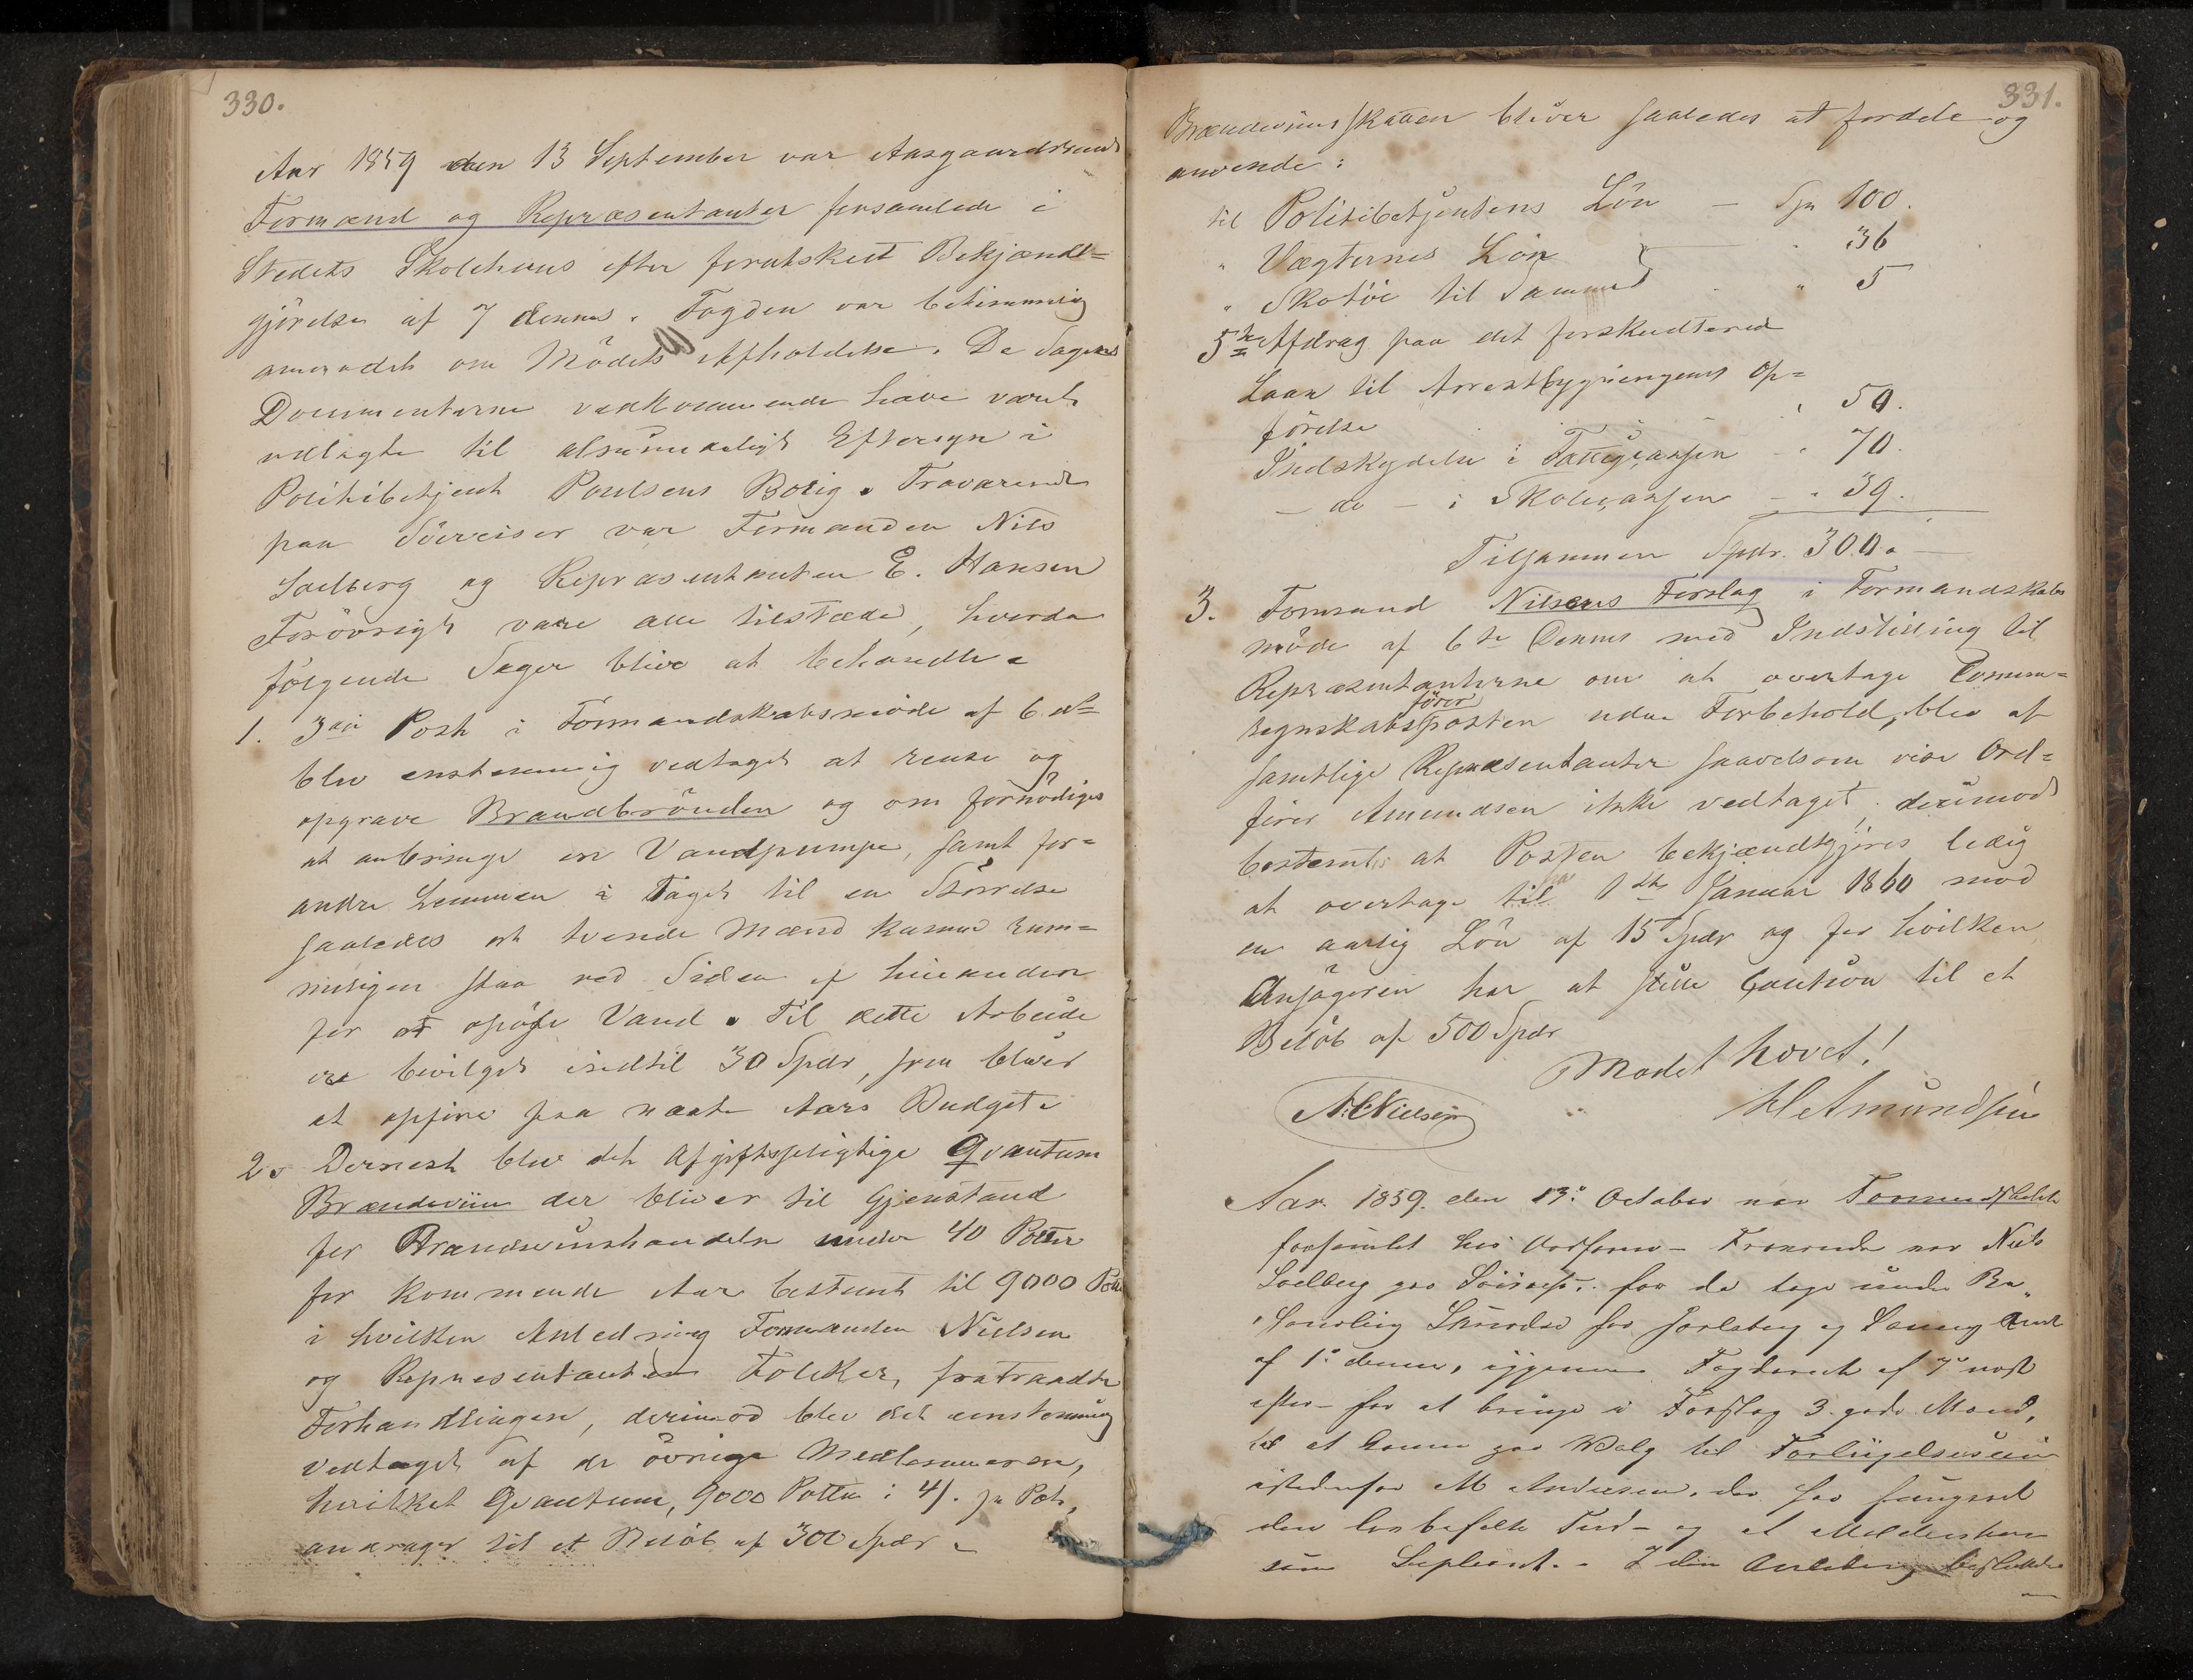 330.
Aar 1859 den 13 September var Aasgaardstrands
Formænd og Repræsentanter forsamlede i
Stedets Skolehuus efter forutskeet Bekjændt=
gjörelse af 7 dennes. Fogden var betimmelig
anmodet om Mödets Afholdelse. De Sagens
Documenterne vedkommende have været
udlagte til almindeligt Eftersyn i
Politibetjent Poulsens Bolig. Fraværende
paa Söereiser var Formanden Nils
Soelberg og Repræsentanten E. Hansen
Forövrigt vare alle tilstæde, hvorda
fölgende Sager blive at behandle.
1. 3die Post i Formandskabsmöde af 6 ds
blev enstemmig vedtaget at rense og
opgrave Brandbrönden og om fornödiges
at anbringe en Vandpumpe, samt for=
andre Lemmen i Taget til en Störrelse
saaledes at tvende Mænd kunne rum=
meligen staa ved Siden af hinanden
for at opöse Vand. Til dette Arbeide
ere bevilget indtil 30 Spdr, som bliver
at opföre paa næste Aars Budget.
2. Dernest blev det Afgiftspligtige Qvantum
Brændeviin der bliver til Gjenstand
for Brændeviinshandelen under 40 Potter
for kommende Aar bestemt til 9000 Potter
i hvilken Anledning Formanden Nielsen
og Repræsentanten Folcker, fratraadte
Forhandlingen, derimod blev det eenstemmig
vedtaget af de övrige Medlemmerne,
hvilket Qvantum, 9000 Potter i 4 s. pr Pot,
andrager til et Belöb af 300 Spdr.
331.
Brændeviins skatten bliver saaledes at fordele og
anvende:
til Politibetjentens Lön — Spd 100.
" Vægternes Lön — " 36
" Skotöi til Samme " 5
5te Afdrag paa det forskudterede
Laan til Arrestbygningens Op=
förelse " 50.
Indskydelse i Fattigcassen — " 70.
— do — i Skolecassen — " 39.
Tilsammen Spdr. 300. —
3. Formand Nilsens Forslag i Formandskabs
möde af 6te Dennes med Indstilling til
Repræsentanterne om at overtage Comm=
regnskabsförerposten uden Forbehold, blev af
samtlige Repræsentanter saavelsom vise Ord=
förer Amundsen ikke vedtaget, derimod
bestemt at Posten bekjændtgjöres ledig
at overtage til 1ste Januar 1860 mod
en aarlig Lön af 15 Spdr og for hvilken
Ansögeren har at stille Caution til et
Belöb af 500 Spdr
Mödet hævet!
N. C. Nielsen
H Amundsen
Aar 1859. den 13. October var Formandskabet
forsamlet hos Ordförer — Fraværende var Niels
Soelberg paa Söireise. for da tage under Be„
handling Skrivelse fra Jarlsberg og Laurvig Amt
af 1. dennes, igjennem Fogderiet af 7. næst
efter — for at bringe i Forslag 3. gode Mænd,
til at komme paa Valg til Forligelsescom
istedenfor M Andersen, der har fungeret
den lovbefalte Tid — og et Meddelelse
som Supleant. — I den Anledning besluttede